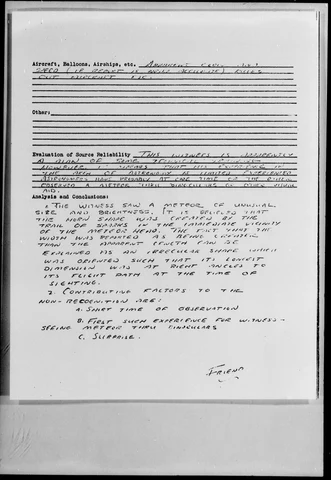 Aircraft, Balloons, Airships, etc. APPARENT
SPEED (IF REPORT IS EVEN ACCURATE) RULES
OUT AIRCRAFT ETC.
Other:
Evaluation of Source Reliability THIS WITNESS IS APPARENTLY
A MAN OF SOME TECHNICAL
HOWEVER IT APPEARS THAT HIS EXPERIENCE IN
THE AREA OF ASTRONOMY IS LIMITED EXPERIENCED
ASTRONOMERS HAVE PROBABLY AT ONE TIME OR THE OTHER
OBSERVED A METEOR THRU BINOCULARS OR OTHER VISUAL
AID.
Analysis and Conclusions:
1. THE WITNESS SAW A METEOR OF UNUSUAL
SIZE AND BRIGHTNESS. IT IS BELIEVED THAT
THE SHAPE WAS CREATED BY THE
TRAIL OF SPARKS IN THE IMMEDIATE VICINITY
OF THE METEOR HEAD. THE FACT THAT THE
WIDTH WAS REPORTED AS BEING GREATER
THAN THE APPARENT LENGTH CAN BE
EXPLAINED AS AN IRREGULAR SHAPE WHICH
WAS DEFINED SUCH THAT ITS LONGEST
DIMENSION WAS AT RIGHT ANGLES TO
ITS FLIGHT PATH AT THE TIME OF
SIGHTING.
2. CONTRIBUTING FACTORS TO THE
NON-RECOGNITION ARE:
A. SHORT TIME OF OBSERVATION
B. FIRST SUCH EXPERIENCE FOR WITNESS-
SEEING METEOR THRU BINOCULARS
C. SURPRISE.
FRIEND